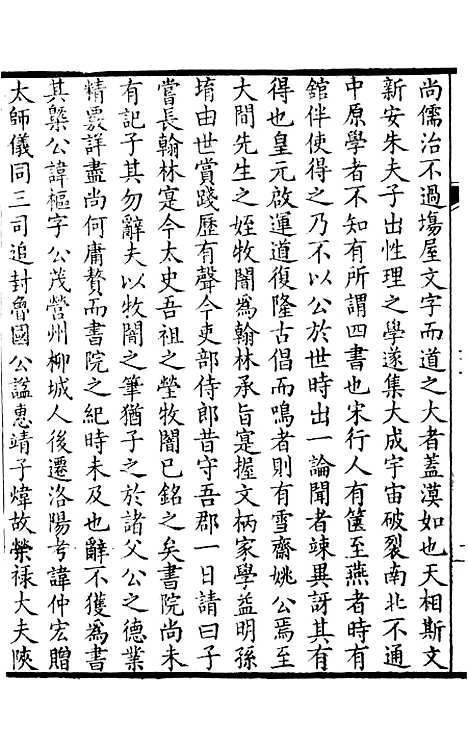 尚儒治不過塲屋文字而道之大者蓋漠如也天相斯文
新安朱夫子出性理之學遂集大成宇宙破裂南北不通
中原學者不知有所謂四書也宋行人有篋至燕者時有
館伴使得之乃不以公於世時出一論聞者竦異訝其有
得也皇元啟運道復隆古倡而鳴者則有雪齋姚公焉至
大間先生之姪牧闇爲翰林承旨寔握文柄家學益明孫
堉由世賞踐歷有聲今吏部侍郎昔守吾郡一日請曰子
嘗長翰林寔今太史吾祖之塋牧闇已銘之矣書院尚未
有記子其勿辭夫以牧闇之筆猶子之於諸父公之德業
精覈詳盡尚何庸贅而書院之紀時未及也辭不獲爲書
其槩公諱樞字公茂營州柳城人後遷洛陽考諱仲宏贈
太師儀同三司追封魯國公謚惠靖子煒故榮禄大夫陝